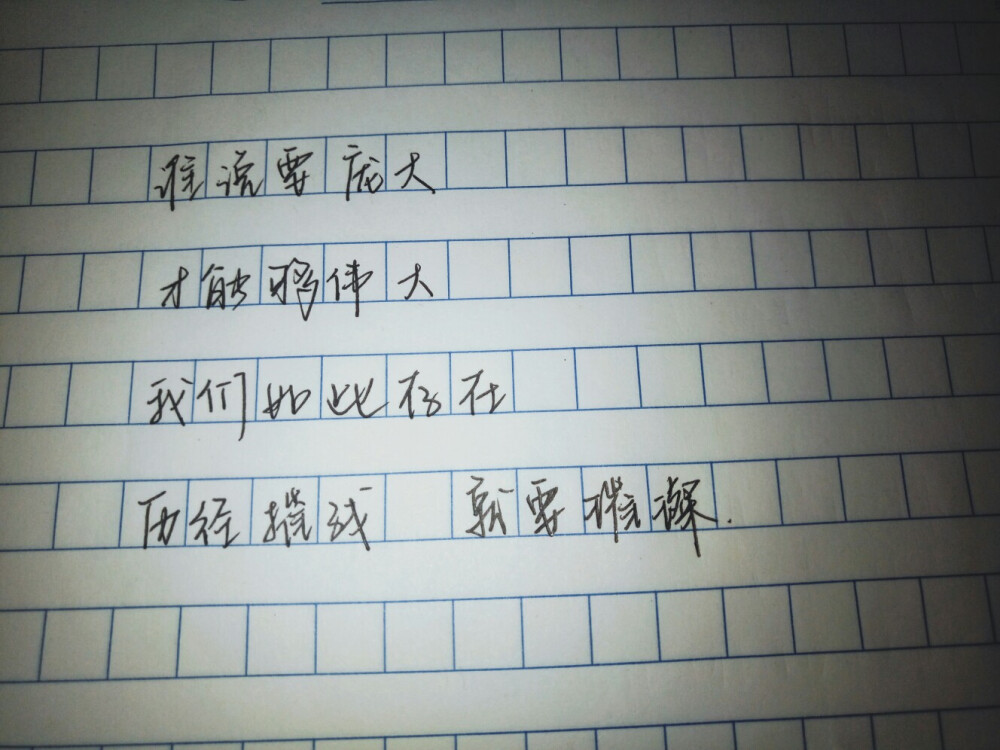 谁说要庞大
才能够伟大
我们如此存在
历经摧残 就要璀璨.